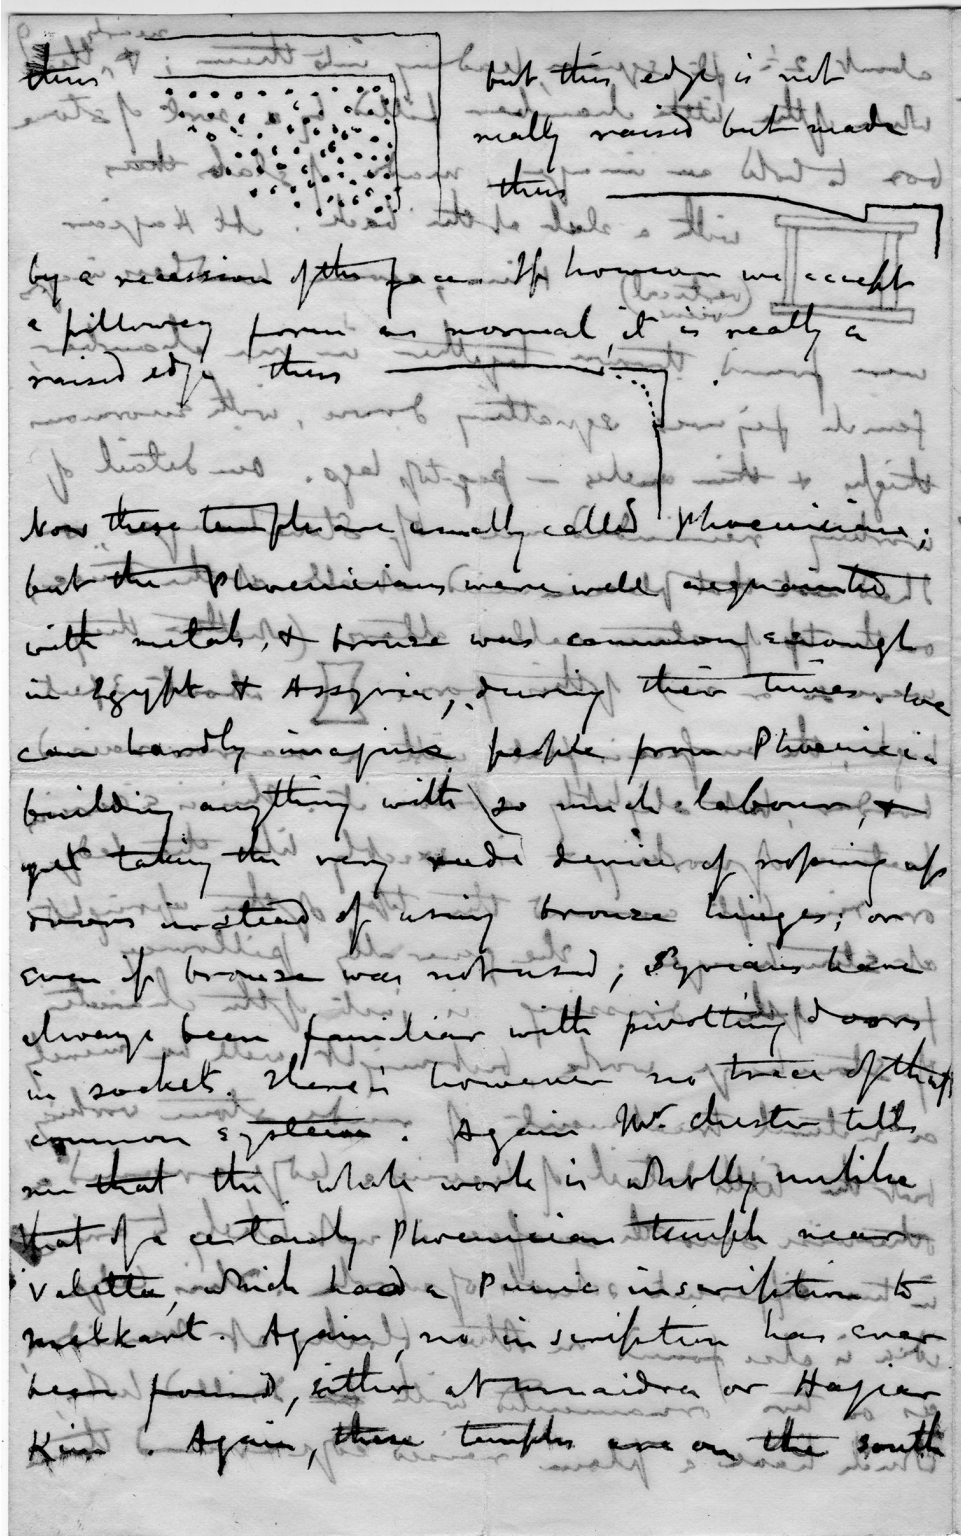 thus
but this edge is not
really raised but made
thus
by a recession of the face. If however we accept
a pillowey form as normal, it is really a
raised edge thus
Now these temples are usually called Phoenician;
but the Phoenicians were well acquainted
with metals, & bronze was common enough
in Egypt & Assyria, during their times. We
can hardly imagine people from Phoenicia
building anything with so much labour, &
yet taking the very rude device of roping up
doors instead of using bronze hinges; or
even if bronze was not used, Syrians have
always been familiar with pivotting doors
in sockets. There is however no trace of that
common system. Again Mr. Chester tells
me that the whole work is wholly unlike
that of a certainly Phoenician temple near
Valetta, which had a Punic inscription to
Melkart. Again, no inscription has ever
been found, either at Mnaidra or Hagiar
Kim. Again, these temples are on the south